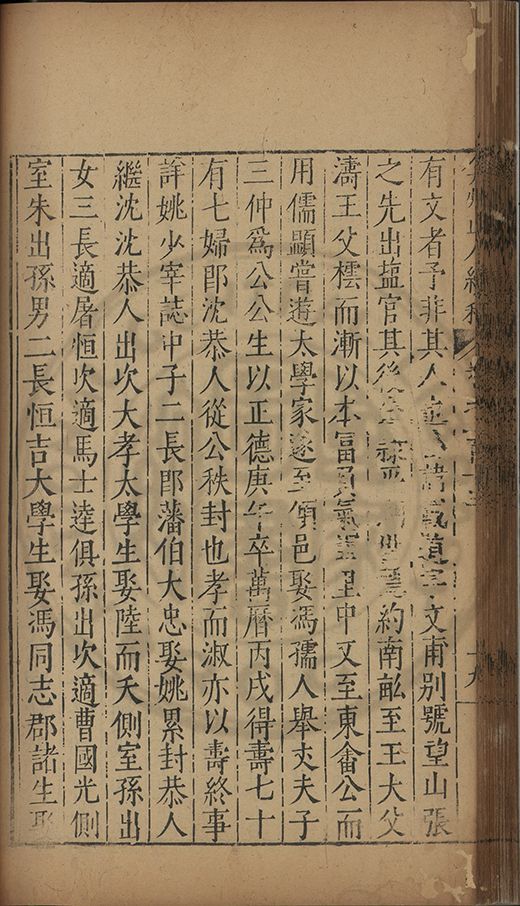 有文者予非其人文甫別號望山張
之先出塩官其後約南畝至王大父
濤王父檽而漸以本富里中又至東畬公而
用儒顯嘗遊太學家遂至傾邑娶馮孺人舉丈夫子
三仲爲公公生以正德庚午卒萬曆丙戌得壽七十
有七婦郎沈恭人從公秩封也孝而淑亦以壽終事
詳姚少宰誌中子二長郎藩伯大忠娶姚累封恭人
繼沈沈恭人出次大孝太學生娶陸而夭側室孫出
女三長適屠恒次適馬士達俱孫出次適曹國光側
室朱出孫男二長恒吉大學生娶馮同志郡諸生娶